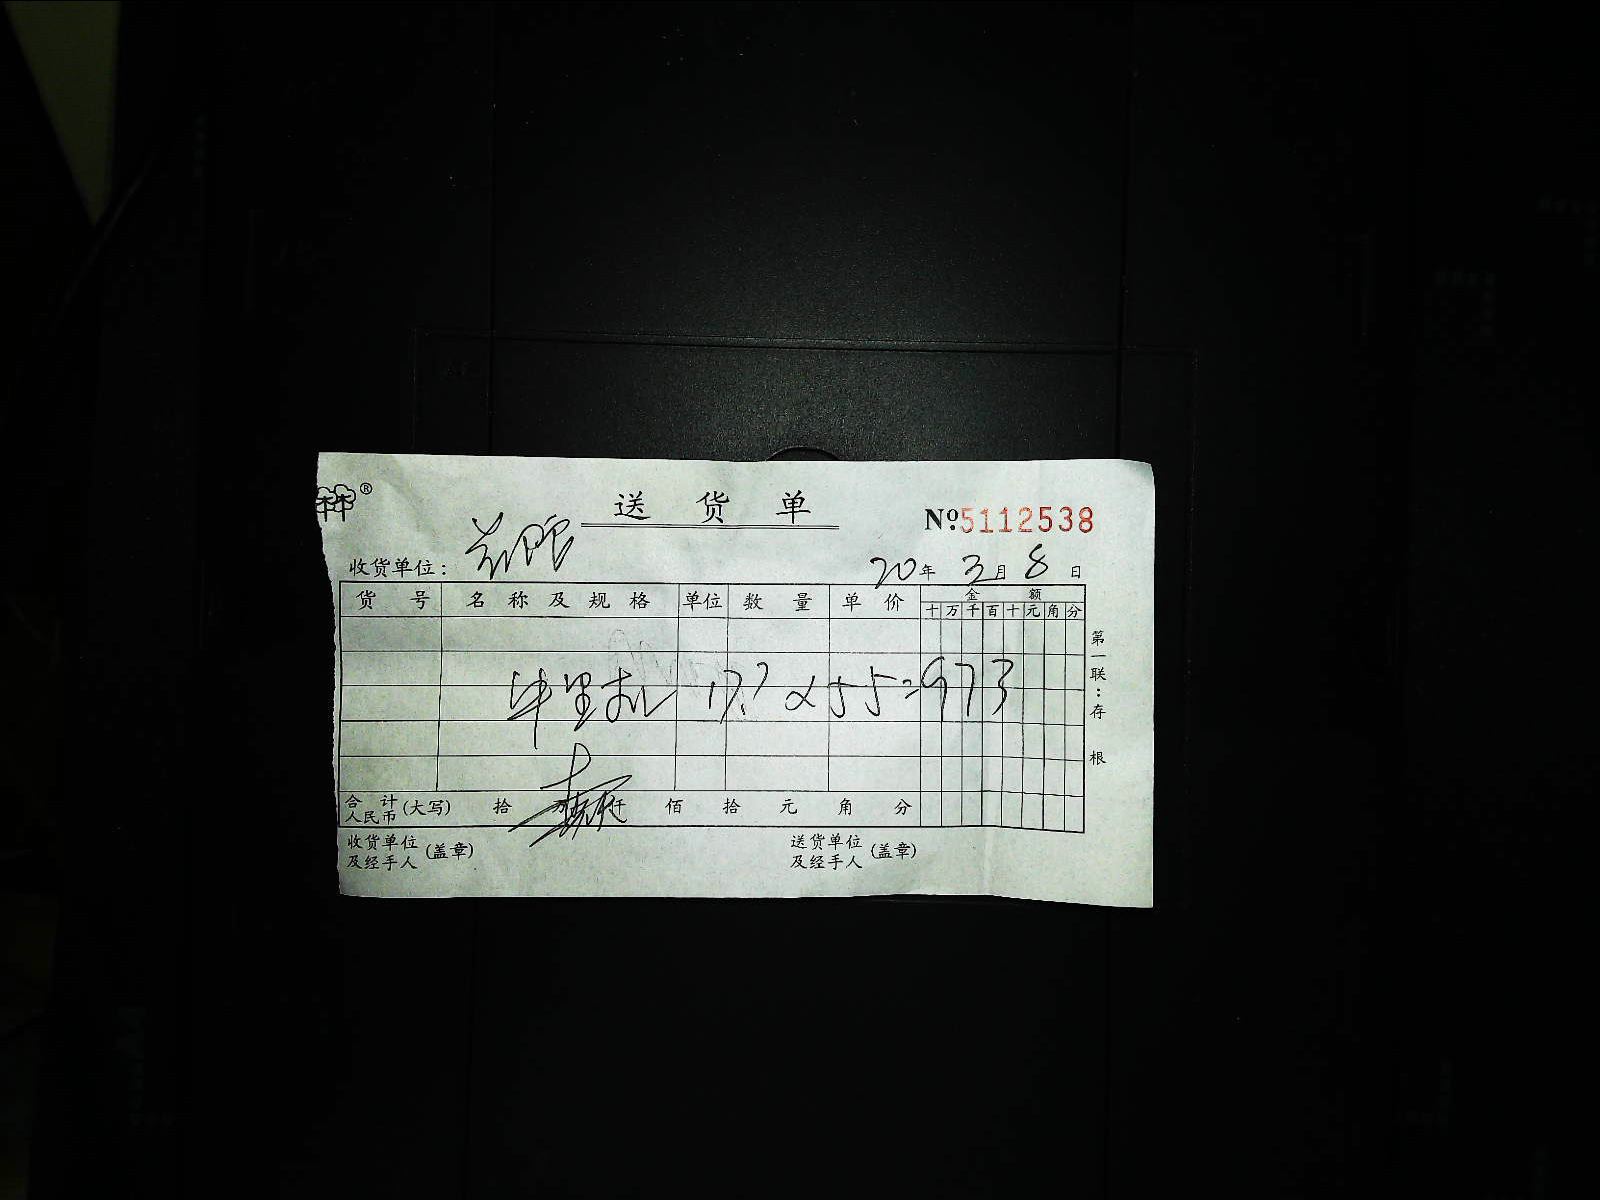 送货单
№5112538
收货单位:
20年 3月 8日
货号 名称及规格 单位 数量 单价 金额
十万千百十元角分
牛里机 17.7×55=973
合计人民币(大写) 拾 万 仟 佰 拾 元 角 分
收货单位及经手人(盖章) 送货单位及经手人(盖章)
第一联:存根